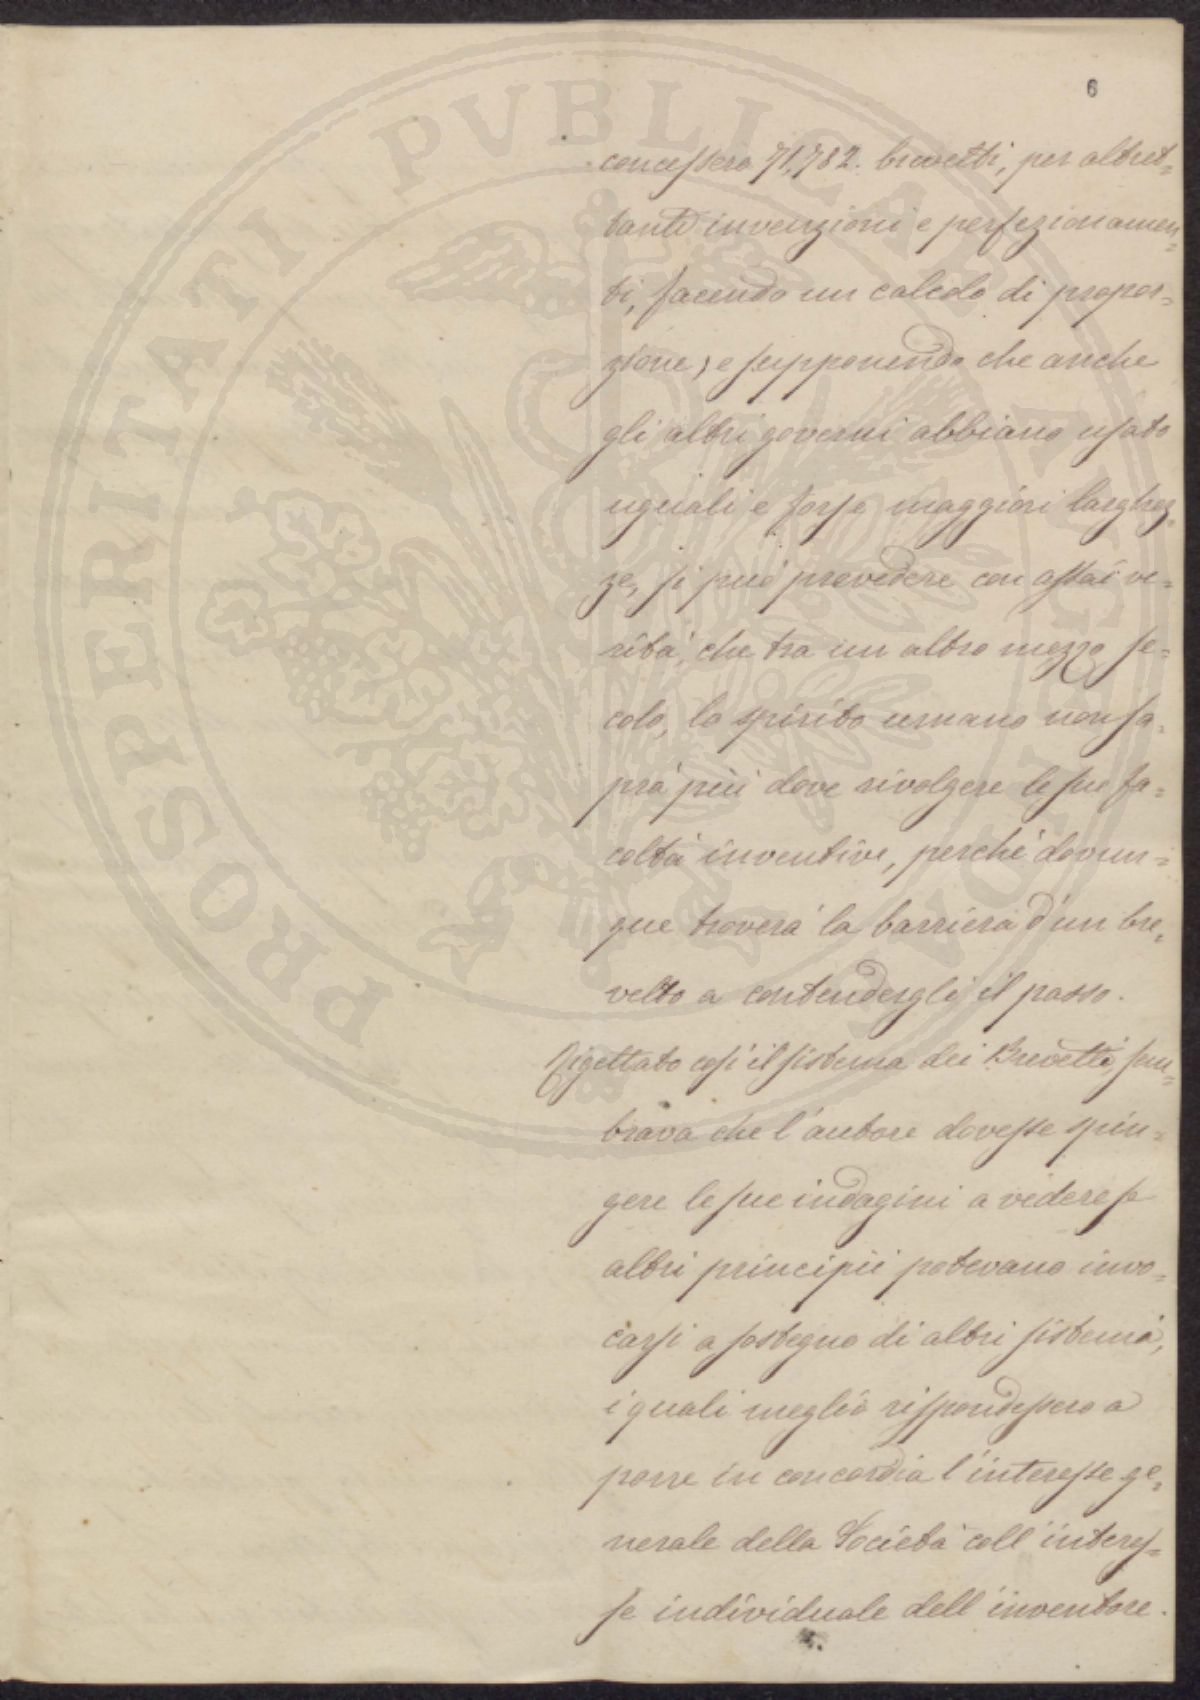 6
concessero 71,782. brevetti, per altret=
tante invenzioni e perfezionamen=
ti, facendo un calcolo di propor=
zione, e supponendo che anche
gli altri governi abbiano usato
uguali e forse maggiori larghez=
ze, si può prevedere con assai ve=
rità, che tra un altro mezzo se=
colo, lo spirito umano non sa=
prà più dove rivolgere le sue fa=
coltà inventive, perchè dovun=
que troverà la barriera d'un bre=
vetto a contendergli il passo.
Rigettato così il sistema dei Brevetti, sem=
brava che l'autore dovesse spin=
gere le sue indagini a vedere se
altri principii potevano invo=
carsi a sostegno di altri sistemi,
i quali meglio rispondessero a
porre in concordia l'interesse ge=
nerale della Società coll'interes=
se individuale dell'inventore.
PROSPERITATI PVBLICAE